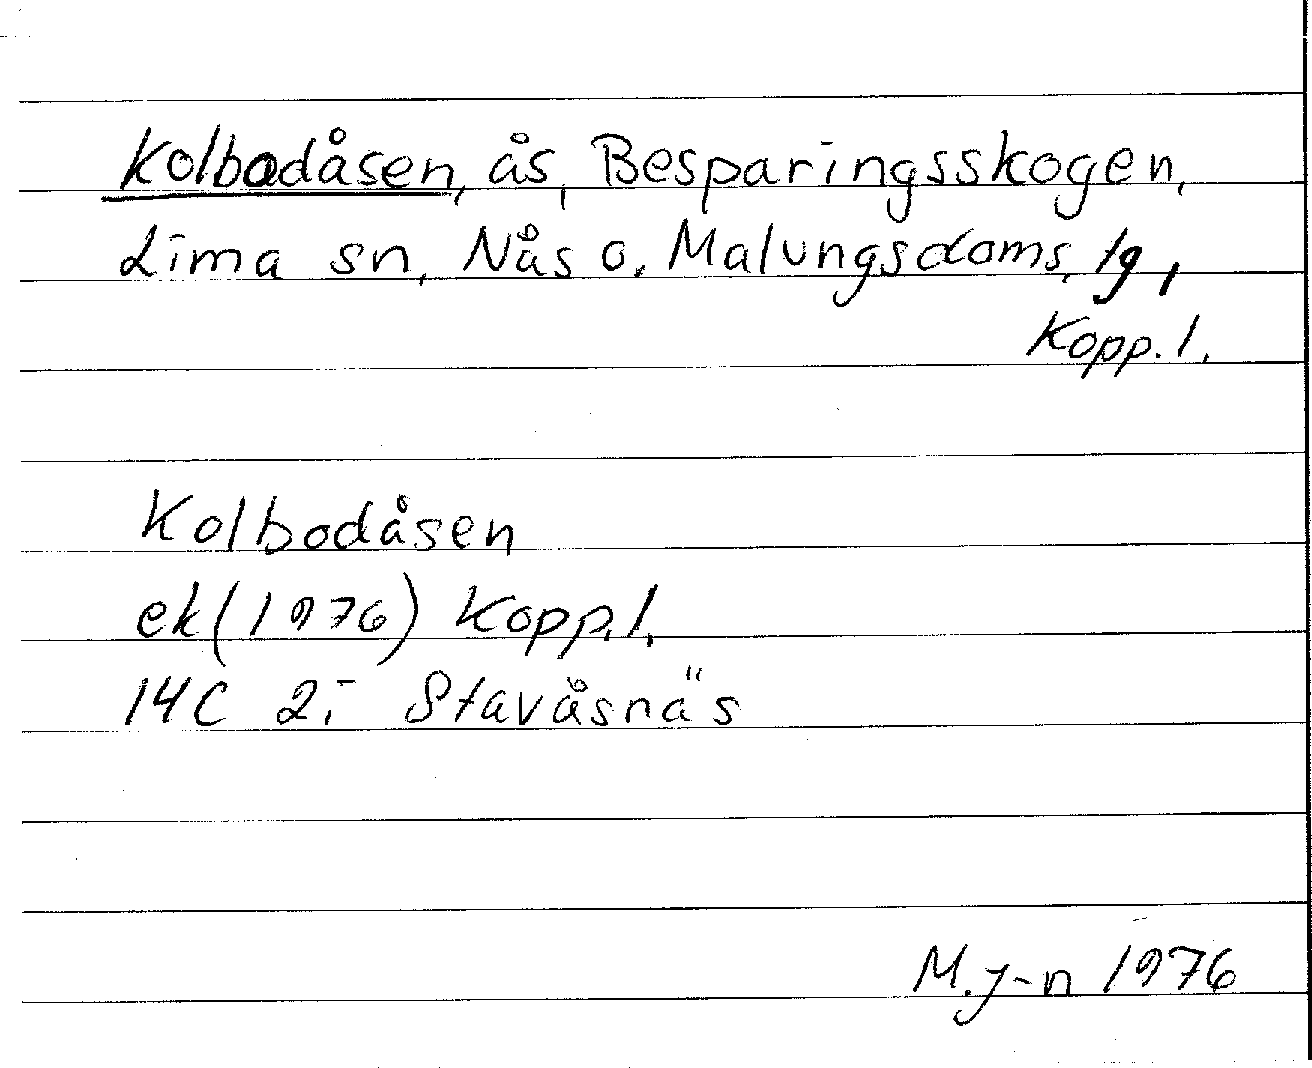 Kolbodåsen, ås, Besparingsskogen,
Lima sn, Nås o. Malungsdoms. lg,
Kopp. l.
Kolbodåsen
ek(1976) Kopp.l.
14C 2:- Stavåsnäs
M.J-n 1976